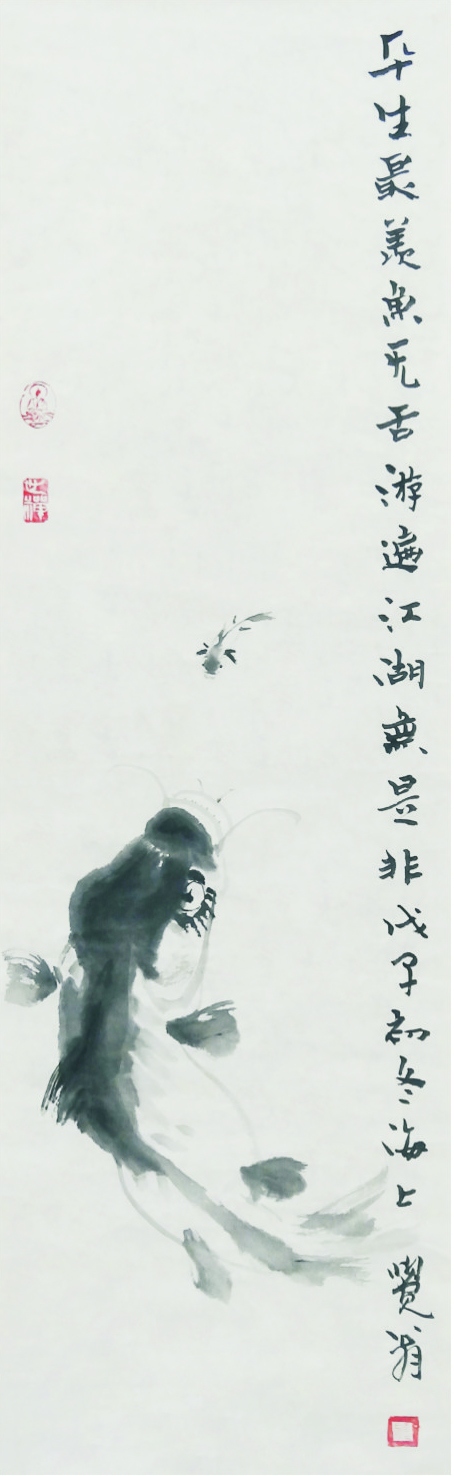 平生最羡魚无舌游遍江湖無是非戊子初冬海上 覺翁